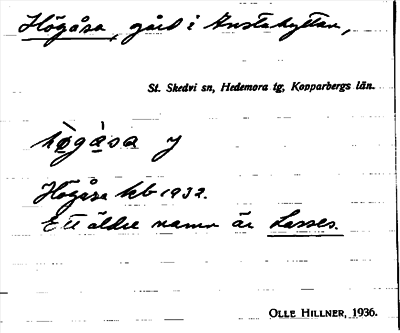 Högåsa, gård i Anstahyttan,
St. Skedvi sn, Hedemora tg, Kopparbergs län.
hø̀gàsa y
Högåsa kb 1932.
Ett äldre namn är Lasses.
OLLE HILLNER, 1936.